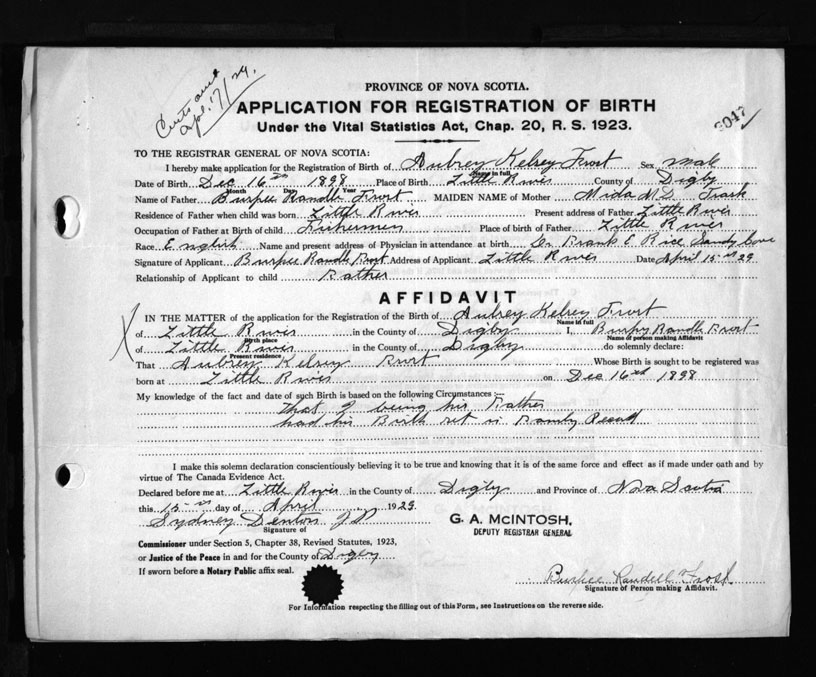 Apl. 17/29.
PROVINCE OF NOVA SCOTIA.
APPLICATION FOR REGISTRATION OF BIRTH
Under the Vital Statistics Act, Chap. 20, R. S. 1923.
TO THE REGISTRAR GENERAL OF NOVA SCOTIA:
I hereby make application for the Registration of Birth of Aubrey Kelsey Frost Sex male
Name in full
Date of Birth Dec 16th 1898 Place of Birth Little River County of Digby
Month Day Year
Name of Father Burpee Randle Frost MAIDEN NAME of Mother Mida Trask
Residence of Father when child was born Little River Present address of Father Little River
Occupation of Father at Birth of child Fishermen Place of birth of Father Little River
Race English Name and present address of Physician in attendance at birth Dr Frank E Rice Sandy Cove
Signature of Applicant Burpee Randle Frost Address of Applicant Little River Date April 15 29
Relationship of Applicant to child Father
AFFIDAVIT
IN THE MATTER of the application for the Registration of the Birth of Aubrey Kelsey Frost
Name in full
of Little River in the County of Digby I, Burpy Randle Frost
Birth place Name of person making Affidavit
of Little River in the County of Digby do solemnly declare:
Present residence
That Aubrey Kelsey Frost Whose Birth is sought to be registered was
born at Little River on Dec 16th 1898
My knowledge of the fact and date of such Birth is based on the following Circumstances:—
That I being his Father
had his Birth set in Family Record
I make this solemn declaration conscientiously believing it to be true and knowing that it is of the same force and effect as if made under oath and by
virtue of The Canada Evidence Act.
Declared before me at Little River in the County of Digby and Province of Nova Scotia
this 15 day of April 1929
Sydney Denton J P
Signature of
G. A. McINTOSH,
DEPUTY REGISTRAR GENERAL
Commissioner under Section 5, Chapter 38, Revised Statutes, 1923,
or Justice of the Peace in and for the County of Digby
If sworn before a Notary Public affix seal.
Burpee Randell Frost
Signature of Person making Affidavit.
For Information respecting the filling out of this Form, see Instructions on the reverse side.